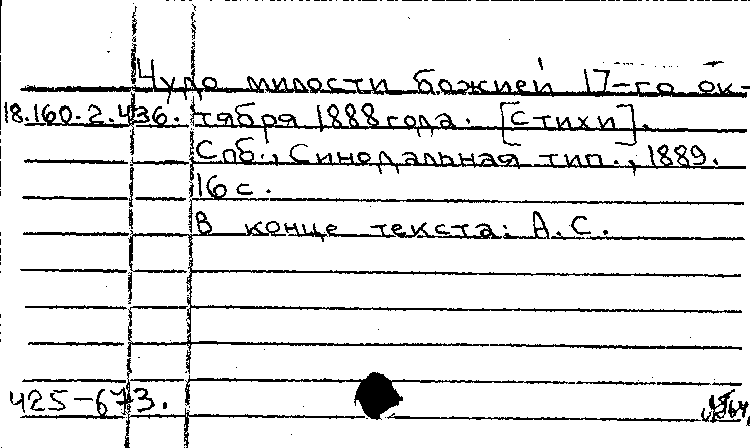 Чудо милости божией 17-го ок-
18.160.2.436. тября 1888 года. [Стихи].
Спб., Синодальная тип., 1889.
16 с.
В конце текста: А.С.
425-673.